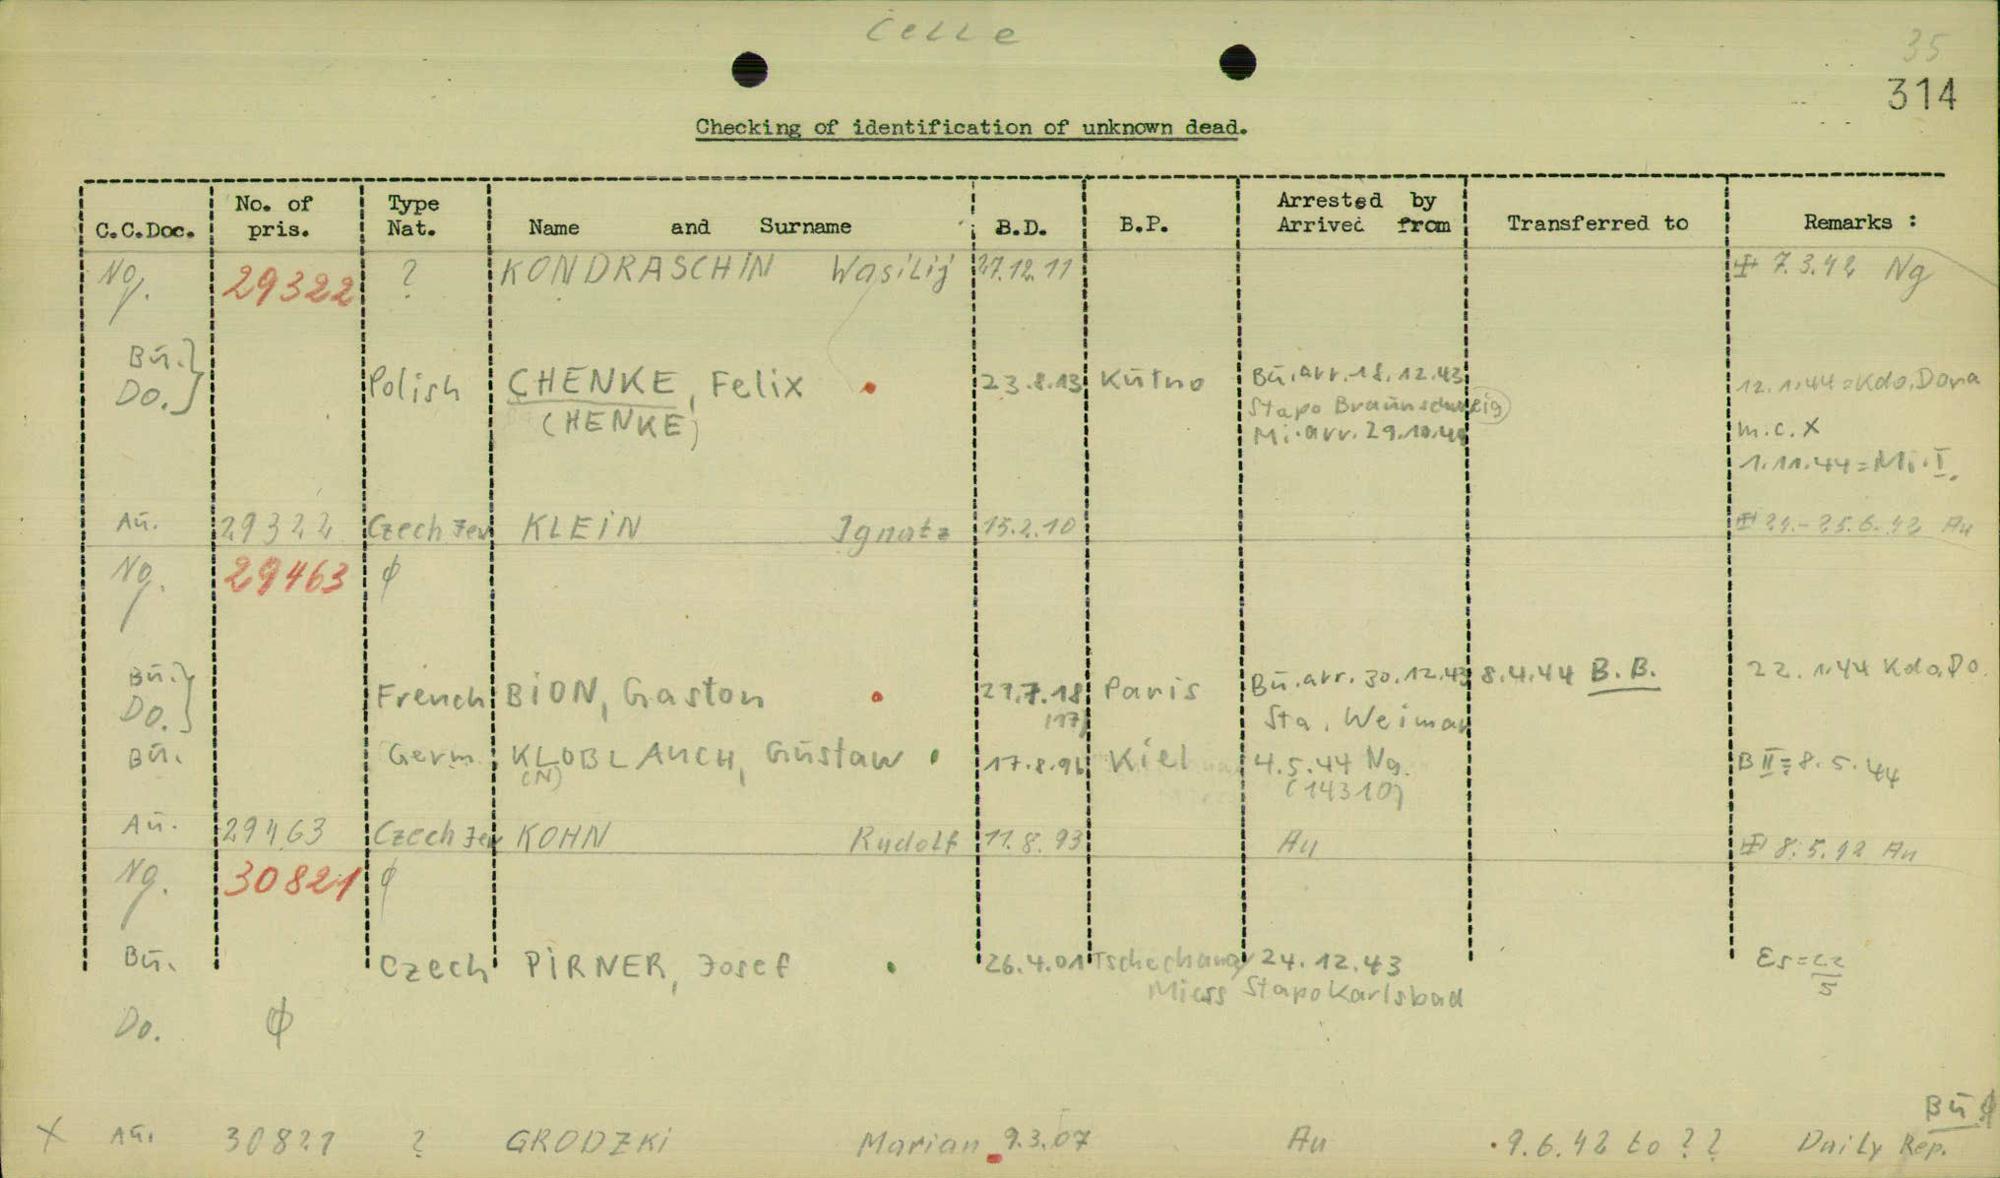 Celle
35
314
Checking of identification of unknown dead.
C.C.Doc. No. of pris. Type Nat. Name and Surname B.D. B.P. Arrested by Arrived from Transferred to Remarks :
Ng. 29322 ? KONDRASCHIN Wasilij 27.12.11 7.3.42 Ng
Bū. Do. Polish CHENKE, Felix 23.8.13 Kūtno Bū.arr.18.12.43 12.1.44=Kdo.Dora
(HENKE) Stapo Braūnschweig m.c.X
Mi.arr.29.10.44 1.11.44=Mi.I.
Aū. 29322 Czech Jew KLEIN Ignatz 15.2.10 24.-25.6.42 Au
Ng. 29463 ϕ
Bū. Do. French BION, Gaston 27.7.18 Paris Bū.arr.30.12.43 8.4.44 B.B. 22.1.44 Kdo.Do.
(17) Sta. Weimar
Bū. Germ. KLOBLAUCH, Gūstaw 17.8.96 Kiel 4.5.44 Ng. B II=8.5.44
(N) (14310)
Aū. 29463 Czech Jew KOHN Rudolf 11.8.93 Au 8.5.42 Au
Ng. 30821 ϕ
Bū. Czech PIRNER, Josef 26.4.01 24.12.43
Miess Stapo Karlsbad
Do. ϕ
Bū ϕ
X Aū. 30821 ? GRODZKI Marian 9.3.07 Au 9.6.42 to ?? Daily Rep.